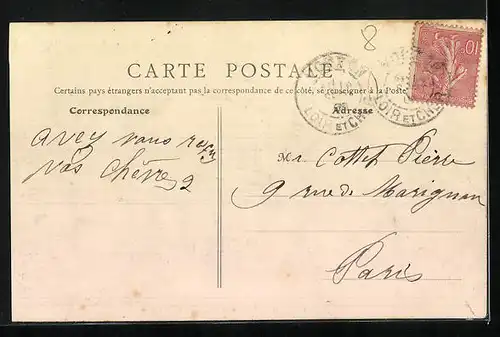 8
CARTE POSTALE
Certains pays étrangers n'acceptant pas la correspondance de ce côté, se renseigner à la Poste
Correspondance
Adresse
LOIR ET CHER
LOIR ET CHER
10
avez vous reçu
vos chèvres
Mr Cottet Pierre
9 rue de Marignan
Paris